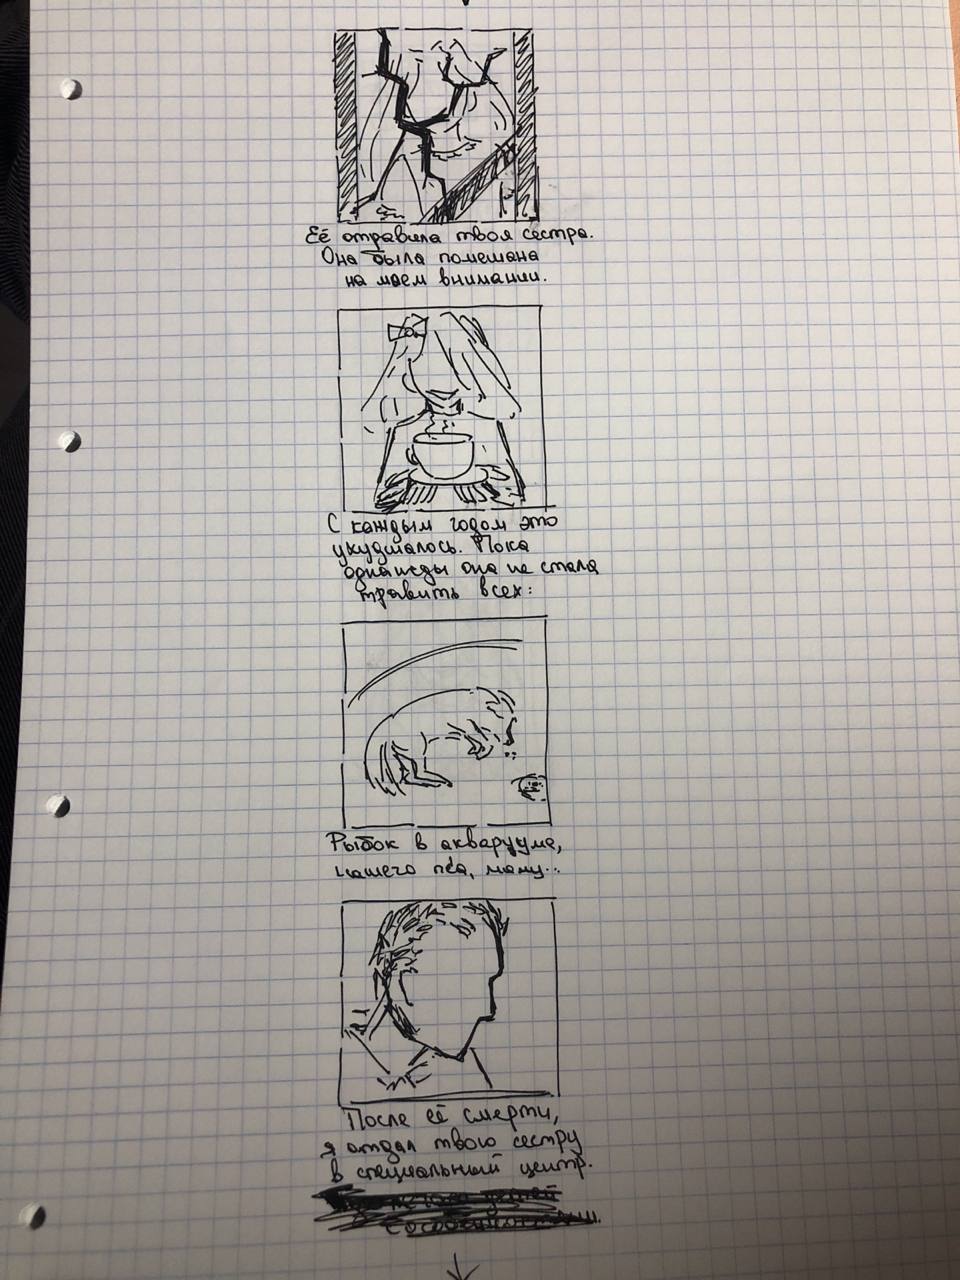 Её отравила твоя сестра.
Она была помешана
на моем внимании.
С каждым годом это
ухудшалось. Пока
однажды она не стала
травить всех:
Рыбок в акварууме,
нашего пса, маму...
После её смерти,
я отдал твою сестру
в специальный центр.